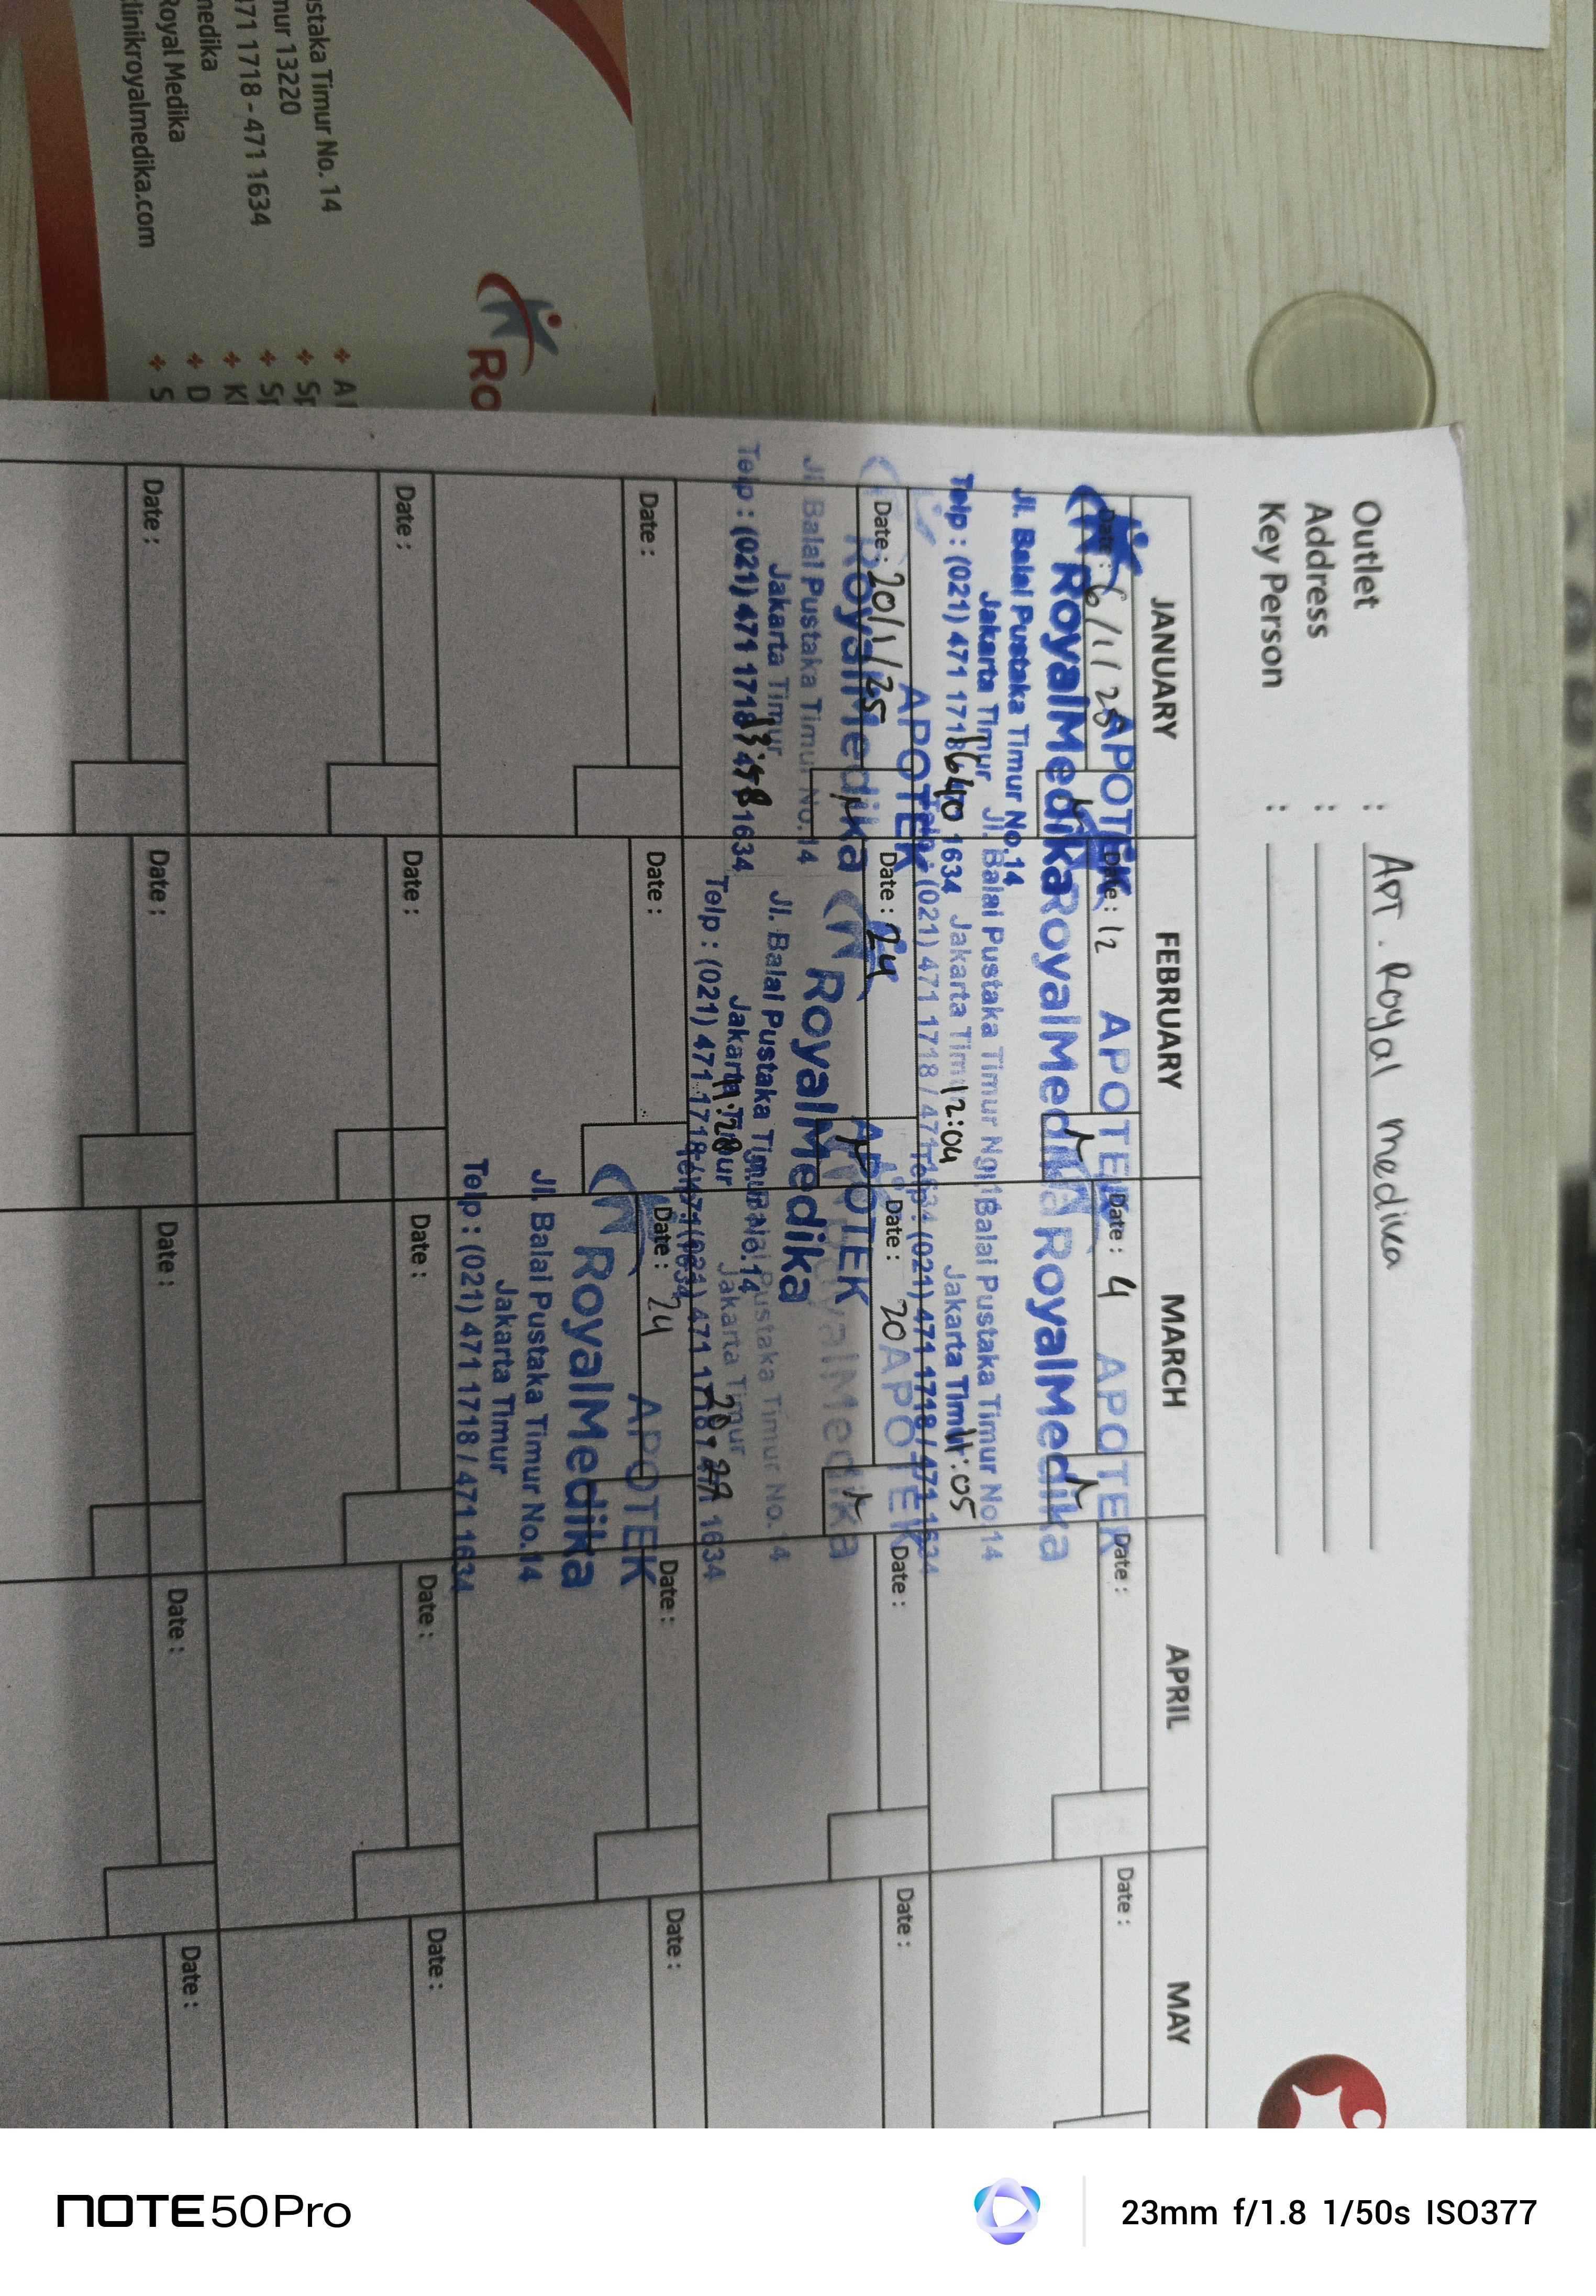 Outlet : APT. Royal medika
Address :
Key Person :
JANUARY FEBRUARY MARCH APRIL MAY
Date : 6/1/25 Date : 12 Date : 4 Date : Date :
APOTEK APOTEK APOTEK
RoyalMedika RoyalMedika RoyalMedika
Jl. Balai Pustaka Timur No.14 Jl. Balai Pustaka Timur No.14 Jl. Balai Pustaka Timur No.14
Jakarta Timur Jakarta Timur Jakarta Timur
16:40 12:04 11:05
Telp : (021) 471 1718 / 471 1634 Telp : (021) 471 1718 / 471 1634 Telp : (021) 471 1718 / 471 1634
Date : 20/1/25 Date : 24 Date : 20 Date : Date :
APOTEK APOTEK APOTEK
RoyalMedika RoyalMedika RoyalMedika
Jl. Balai Pustaka Timur No.14 Jl. Balai Pustaka Timur No.14 Jl. Balai Pustaka Timur No.14
Jakarta Timur Jakarta Timur Jakarta Timur
Telp : (021) 471 1718 / 471 1634 Telp : (021) 471 1718 / 471 1634 Telp : (021) 471 1718 / 471 1634
Date : Date : Date : 24 Date : Date :
APOTEK
RoyalMedika
Jl. Balai Pustaka Timur No.14
Jakarta Timur
Telp : (021) 471 1718 / 471 1634
Date : Date : Date : Date : Date :
Date : Date : Date : Date : Date :
Ro
staka Timur No. 14
mur 13220
71 1718 - 471 1634
medika
Royal Medika
klinikroyalmedika.com
NOTE50Pro
23mm f/1.8 1/50s ISO377